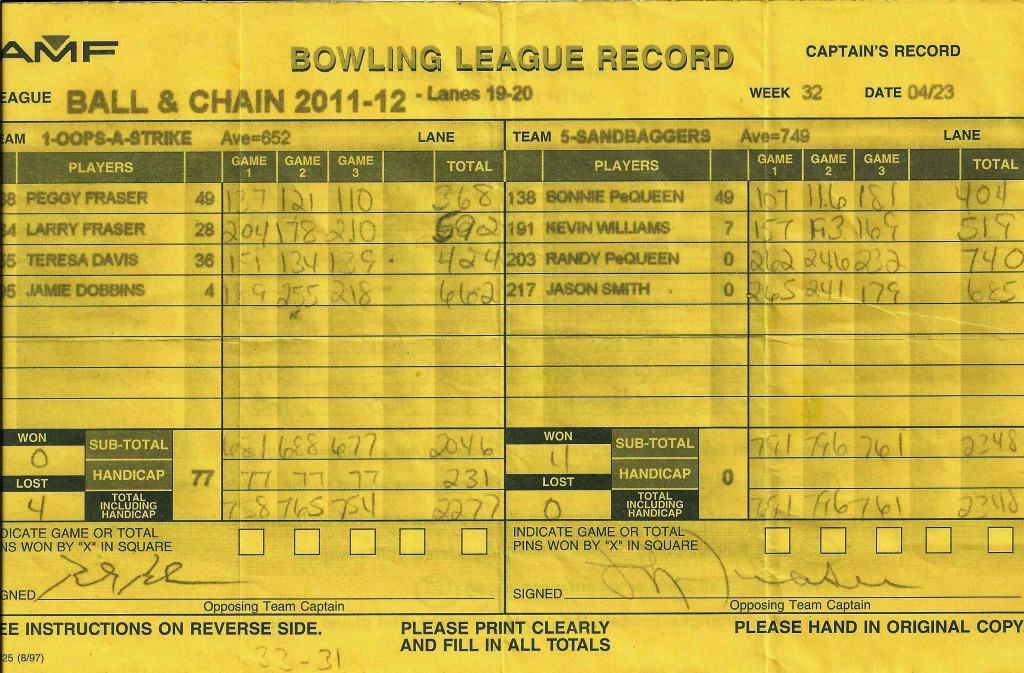 AMF
BOWLING LEAGUE RECORD
CAPTAIN'S RECORD
EAGUE BALL & CHAIN 2011-12 - Lanes 19-20 WEEK 32 DATE 04/23
EAM 1-OOPS-A-STRIKE Ave=652 LANE
PLAYERS GAME 1 GAME 2 GAME 3 TOTAL
PEGGY FRASER 49 137 121 110 368
LARRY FRASER 28 204 178 210 592
TERESA DAVIS 36 151 134 139 424
JAMIE DOBBINS 4 189 255 218 662
WON 0 SUB-TOTAL 681 688 677 2046
HANDICAP 77 77 77 77 231
LOST 4 TOTAL INCLUDING HANDICAP 758 765 754 2277
DICATE GAME OR TOTAL
NS WON BY "X" IN SQUARE
GNED
Opposing Team Captain
TEAM 5-SANDBAGGERS Ave=749 LANE
PLAYERS GAME 1 GAME 2 GAME 3 TOTAL
138 BONNIE PeQUEEN 49 107 116 181 404
191 KEVIN WILLIAMS 7 157 193 169 519
203 RANDY PeQUEEN 0 262 246 232 740
217 JASON SMITH 0 265 241 179 685
WON 4 SUB-TOTAL 791 796 761 2348
HANDICAP 0
LOST 0 TOTAL INCLUDING HANDICAP 791 796 761 2348
INDICATE GAME OR TOTAL
PINS WON BY "X" IN SQUARE
SIGNED
Opposing Team Captain
EE INSTRUCTIONS ON REVERSE SIDE.
PLEASE PRINT CLEARLY
AND FILL IN ALL TOTALS
PLEASE HAND IN ORIGINAL COPY
25 (8/97)
33-31